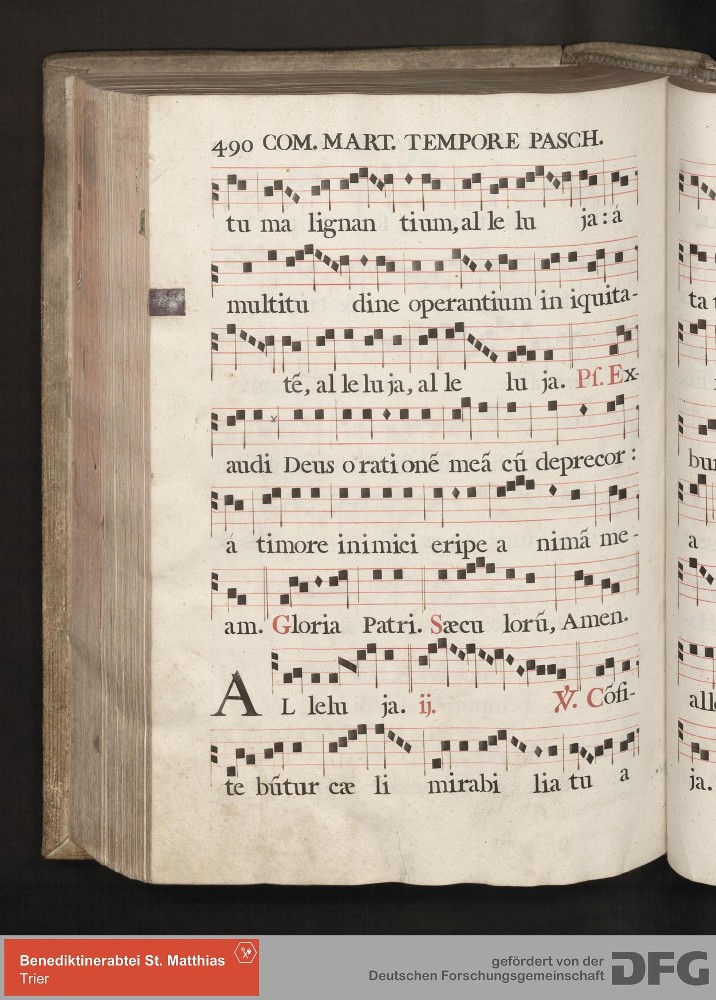 490 COM. MART. TEMPORE PASCH.
tu ma lignan tium, al le lu ja: á
multitu dine operantium in iquita-
tẽ, al le lu ja, al le lu ja. Ps. Ex-
audi Deus o rati onẽ meã cũ deprecor:
á timore inimici eripe a nimã me-
am. Gloria Patri. Sæcu lorũ, Amen.
AL lelu ja. ij. ℣. Cõfi-
te bũtur cæ li mirabi lia tu a
ta
bu
a
all
ja.
Benediktinerabtei St. Matthias
Trier
gefördert von der
Deutschen Forschungsgemeinschaft
DFG